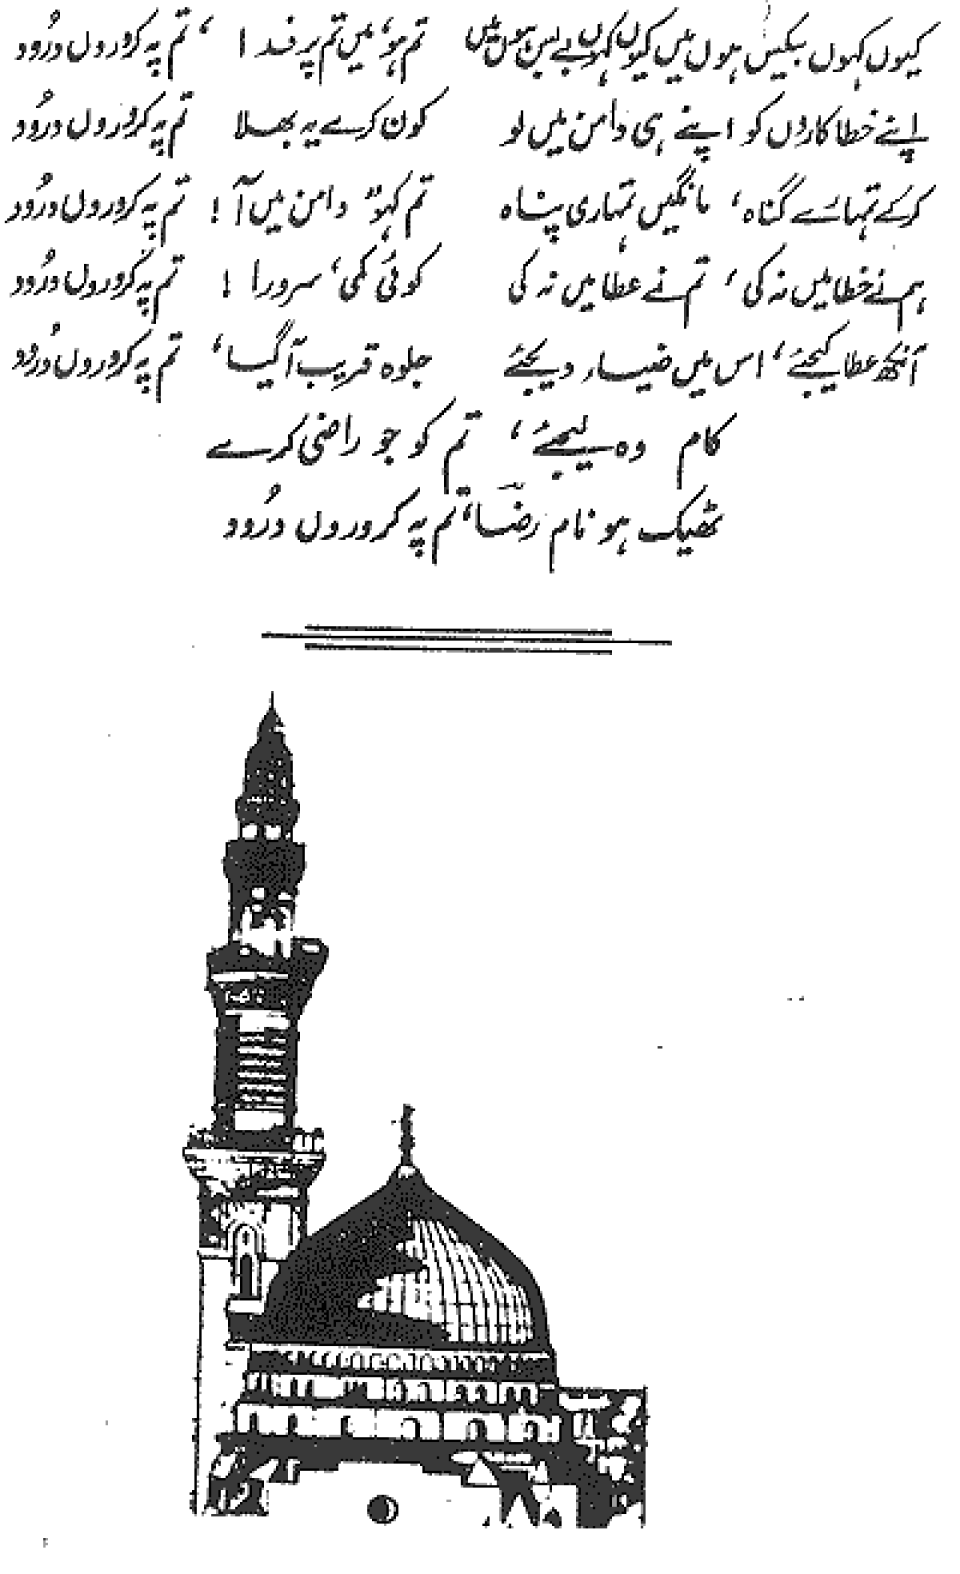 کیوں کہوں بیکس ہوں میں کیوں کہوں بے بس ہوں میں تم ہو، میں تم پر فدا، تم پہ کرورول درُود
اپنے خطا کاروں کو اپنے ہی دامن میں لو کون کرے یہ بھلا تم پہ کرورول درُود
کرکے تمہارے گناہ، مانگیں تمہاری پناہ تم کہو دامن میں آ! تم پہ کرورول درُود
ہم نے خطا میں نہ کی، تم نے عطا میں نہ کی کوئی کمی، سرورا! تم پہ کرورول درُود
آنکھ عطا کیجئے، اس میں ضیاء دیجئے جلوہ قریب آگیا، تم پہ کرورول درُود
کام وہ لیجئے، تم کو جو راضی کرے
ٹھیک ہو نام رضؔا، تم پہ کرورول درُود